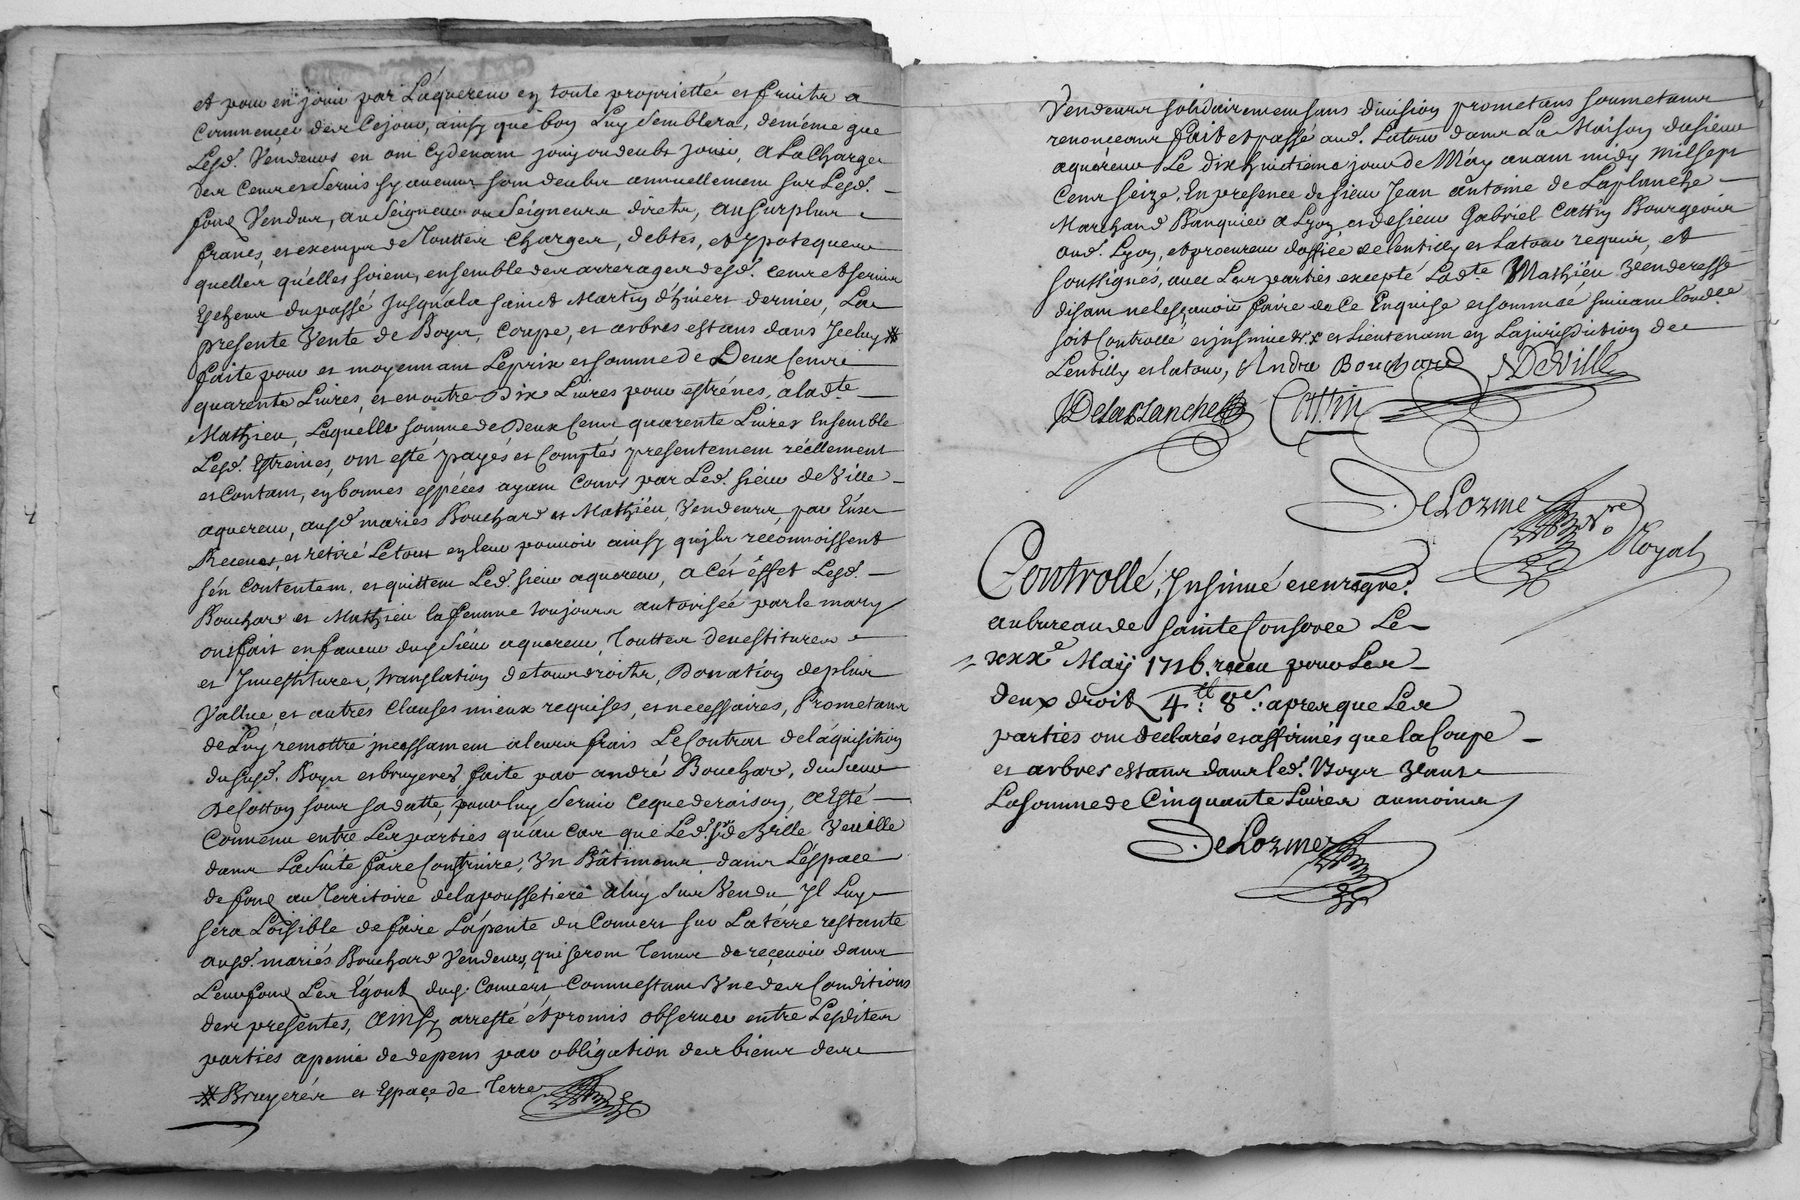 et pour en jouir par Laquereur en toute proprietté et fruitz a
Commencer dez ce jour, ainsy que bon Luy Semblera, de méme que
Lesd. Vendeurs en ont cydevant jouy ou deubt jouir, A La Charge
des Cens et servis sy aucuns sont deubz annuellement sur Lesd.
fond Vendus, au Seigneur ou Seigneurs direts, au surplus
francs, et exempts de Touttes Charges, debtes, et ypoteques
quelles quelles soient, ensemble des arrerages desd. cens et servis
Escheus du passé Jusqu'a la saint Martin d'hivert dernier, La
presente Vente de Boys, Coupe, et arbres estans dans Jceluy #
faite pour et moyennant Le prix et somme de Deux Cent
quarente Livres, et en outre Dix Livres pour estrénes, a lad.te
Mathieu, Laquelle somme de Deux Cent quarente Livres Ensemble
Lesd. Estreines, ont esté payés et Comptés presentement réellement
et Contant, en bonnes espéces ayant Cours par Led. sieur de Ville
aquereur, ausd. mariés Bouchard et Mathieu, Vendeurs, par Eux
Receues, et retiré Le tout en leur pouvoir ainsy qu'jls reconnoissent
s'en contentent, et quittent Led. sieur aquereur, a cét éffet Lesd.
Bouchard et Mathieu la femme toujours autorisée par le mary
ont fait en faveur dud. Sieur aquereur, Touttes devestitures
et Jnvestitures, translation de tous droits, Donation de plus
Vallue, et autres Clauses mieux requises, et necessaires, Prometans
de Luy remettre jncessament a leurs frais Le Contrat de láquisition
dusd. Boys et bruyeres, faite par andré Bouchard, du sieur
De Cotton sous sa datte, pour luy Servir ce que de raison, a Esté
Convenu entre Les parties qu'au cas que Led. sr. de Ville Veuille
dans La Suite faire Construire, Un Bâtiment, dans Léspace
de fond au Territoire de la poussetiere a luy Sus Vendu, Jl Luy
sera Loisible de faire Lápente du Couvert sur La térre restante
ausd. mariés Bouchard Vendeurs, qui seront Tenus de reçevoir dans
Leur fond Les Egout dud. Couvert, Comme étant Une des Conditions
des presentes, Ainsy arresté et promis observer entre Lesdites
parties a peine de depens par obligation des biens des
# Bruyerés et Espaçe de Terre
Vendeurs solidairement sans division prometans soumetans
renonceans fait et passé aud. Latour dans La Maison du sieur
aquéreur Le dix huitieme jour de May avant midy Mil sept
Cent Seize, En presence de sieur Jean antoine de Laplanche
Marchand Banquier a Lyon, et de sieur Gabriel Cattin Bourgeois
aud. Lyon, et procureur d'office de Lentilly et Latour requis, et
soussignés, avec Les parties excepté Lad.te Mathieu Venderesse
disant ne le sçavoir faire de Ce Enquise et sommée suivant l'ord.ce
soit Controllé et jnsinué &.x et Lieutenant en La jurisdiction de
Lentilly et Latour, Andre Bouchard N DeVille
DelapLanche Cattin
DeLorme
n.re Royal
Controllé, Jnsinué et enregré.
au bureau de sainte Consorce Le
xxx.e Maÿ 1716. receu pour Les
deux droit 4.tt 8.s. apres que Les
parties ont declarés et affirmés que la Coupe
et arbres estans dans led. Boys Vaut
La somme de Cinquante Livres au moins
DeLorme